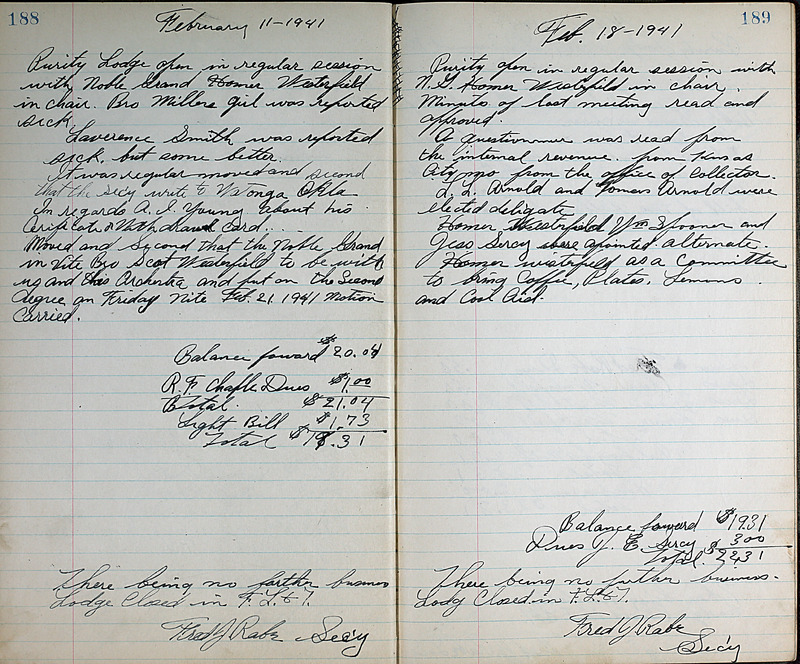 188
February 11-1941
Purity Lodge open in regular session
with Noble Grand Homer Westerfield
in chair. Bro Millers girl was reported
sick.
Laverence Smith was reported
sick, but some better.
It was regular moved and second
that the secy write to Watonga Okla
In regards A. I. Young about his
Cerificate & Withdrawl Card...
Moved and Second that the Noble Grand
in Vite Bro Scot Westerfield to be with
us and this Orchestra and put on the Second
degree on Friday Nite Feb. 21, 1941 Motion
Carried.
Balance foward $20.04
R.F. Dues $1.00
Total. $21.04
Light Bill $1.73
Total $19.31
There being no farther business
Lodge Closed in F. L. & T.
Fred J Rabe Sec'y
189
Feb. 18-1941
Purity open in regular session with
N.G. Homer Westerfield in chair.
Minuts of last meeting read and
approved.
A was read from
the internal revenue. from Kansas
City mo from the office of Collector.
L. L. Arnold and Arnold were
elected deligate
Homer Westerfield Wm Spooner and
Jess Sercy were apointed alternate.
Homer westerfield as a Committee
to bring Coffie, Plates, Lemons
and Cool Aid.
Balance foward $19.31
Dues J. E. Sercy $3.00
Total. $22.31
There being no futher business.
Lodg Closed in F. L. & T.
Fred J Rabe
Sec'y